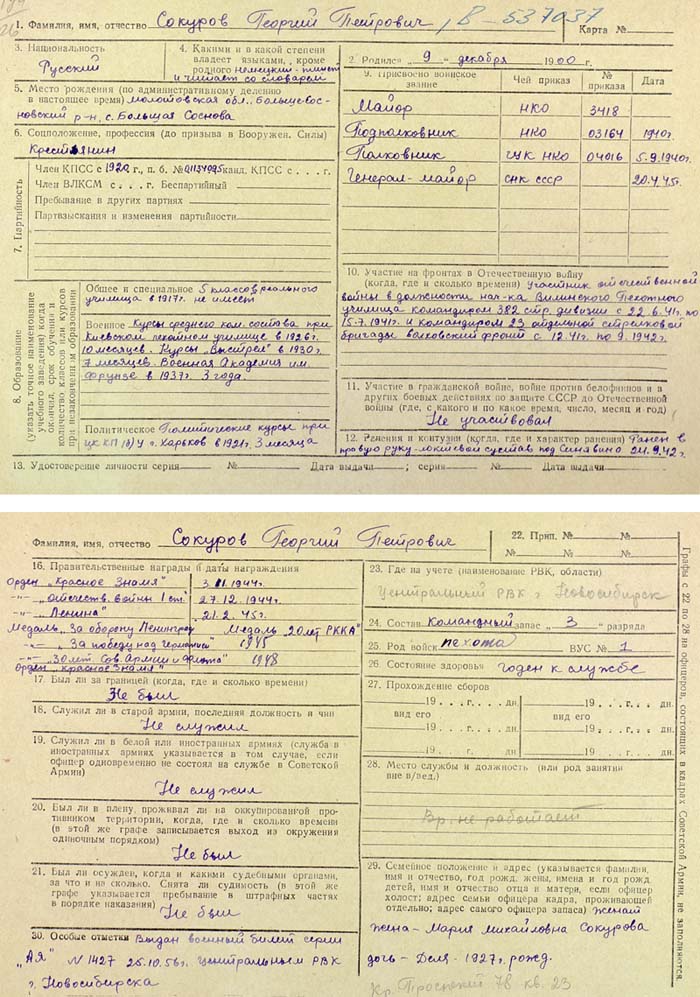 1. Фамилия, имя, отчество Сокуров Георгий Петрович, В-537037
Карта №
3. Национальность
Русский
4. Какими и в какой степени
владеет языками, кроме
родного немецкий - пишет
и читает со словарем
2. Родился „ 9 “ декабря 1900 г.
5. Место рождения (по административному делению
в настоящее время) Молотовская обл., Большесос-
новский р-н, с. Большая Соснова
6. Соцположение, профессия (до призыва в Вооружен. Силы)
Крестьянин
7. Партийность
Член КПСС с 1920 г., п. б. № 01134095 канд. КПСС с . . . г.
Член ВЛКСМ с . . . г. Беспартийный
Пребывание в других партиях
Партвзыскания и изменения партийности
8. Образование
(указать точное наименование
учебного заведения) когда
окончил, срок обучения и
количество классов или курсов
при незаконченном образовании
Общее и специальное 5 классов реального
училища в 1917 г. не имеет
Военное Курсы среднего ком. состава при
Киевском пехотном училище в 1926 г.
10 месяцев. Курсы „Выстрел" в 1930 г.
7 месяцев. Военная Академия им.
Фрунзе в 1937 г. 3 года.
Политическое Политические курсы при
ЦК КП(б)У г. Харьков в 1921 г. 3 месяца
9. Присвоено воинское
звание
Чей приказ
№
приказа
Дата
Майор НКО 3418
Подполковник НКО 03164 1940 г.
Полковник НКО 04016 5.9.1940 г.
Генерал-майор СНК СССР 20.4.45 г.
10. Участие на фронтах в Отечественную войну
(когда, где и сколько времени) Участник отечественной
войны в должности нач-ка Виленского Пехотного
училища командиром 382 стр. дивизии с 22.6.41 г. по
15.7.1941 г. и командиром 23 отдельной стрелковой
бригады Волховский фронт с 12.41 г. по 9.1942 г.
11. Участие в гражданской войне, войне против белофиннов и в
других боевых действиях по защите СССР до Отечественной
войны (где, с какого и по какое время, число, месяц и год)
Не участвовал
12. Ранения и контузии (когда, где и характер ранения) Ранен в
правую руку-локтевой сустав под Синявино 24.9.42 г.
13. Удостоверение личности серия № Дата выдачи ; серия № Дата выдачи
Фамилия, имя, отчество Сокуров Георгий Петрович
22. Прип. № №
№ № №
16. Правительственные награды и даты награждения
Орден „Красное Знамя" 3.11.1944 г.
-"- „Отечеств. Войны I ст." 27.12.1944 г.
-"- „Ленина" 21.2.45 г.
Медаль „За оборону Ленинград Медаль „20 лет РККА"
-"- „За победу над Германией" 1945
-"- „30 лет Сов. Армии и флота" 1948
Орден „Красное Знамя"
17. Был ли за границей (когда, где и сколько времени)
Не был
18. Служил ли в старой армии, последняя должность и чин
Не служил
19. Служил ли в белой или иностранных армиях (служба в
иностранных армиях указывается в том случае, если
офицер одновременно не состоял на службе в Советской
Армии)
Не служил
20. Был ли в плену, проживал ли на оккупированной про-
тивником территории, когда, где и сколько времени
(в этой же графе записывается выход из окружения
одиночным порядком)
Не был
21. Был ли осужден, когда и какими судебными органами,
за что и на сколько. Снята ли судимость (в этой же
графе указывается пребывание в штрафных частях
в порядке наказания)
Не был
30. Особые отметки Выдан военный билет серии
"АЯ" N 1427 25.10.56 г. Центральным РВК
г. Новосибирска
23. Где на учете (наименование РВК, области)
Центральный РВК г. Новосибирск
24. Состав Командный запас „ 3 “ разряда
25. Род войск пехота ВУС № 1
26. Состояние здоровья годен к службе
27. Прохождение сборов
19 . . г. . . . дн. 19 . . г. . . . дн.
вид его вид его
19 . . г. . . . дн. 19 . . г. . . . дн.
19 . . г. . . . дн. 19 . . г. . . . дн.
28. Место службы и должность (или род занятий
вне в/вед.)
Вр. не работает
29. Семейное положение и адрес (указывается фамилия,
имя и отчество, год рожд. жены, имена и год рожд.
детей, имя и отчество отца и матери, если офицер
холост; адрес семьи офицера кадра, проживающей
отдельно; адрес самого офицера запаса) женат
жена - Мария Михайловна Сокурова
дочь - Деля - 1927 г. рожд.
Кр. Проспект 78 кв. 23
Графы с 22 по 28 на офицеров, состоящих в кадрах Советской Армии, не заполняются.